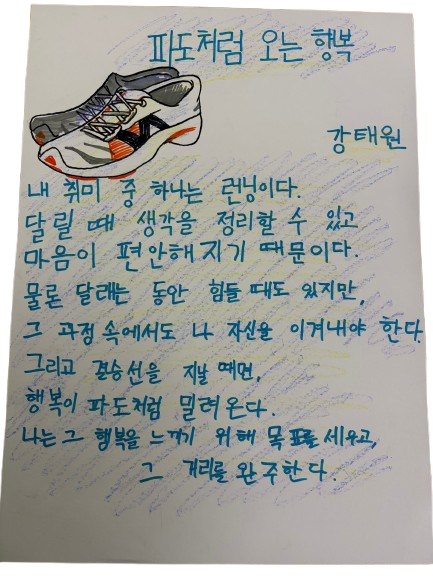 파도처럼 오는 행복
강태원
내 취미 중 하나는 런닝이다.
달릴 때 생각을 정리할 수 있고
마음이 편안해지기 때문이다.
물론 달래는 동안 힘들 때도 있지만,
그 과정 속에서도 나 자신을 이겨내야 한다.
그리고 결승선을 지날 때면,
행복이 파도처럼 밀려온다.
나는 그 행복을 느끼기 위해 목표를 세우고,
그 거리를 완주한다.